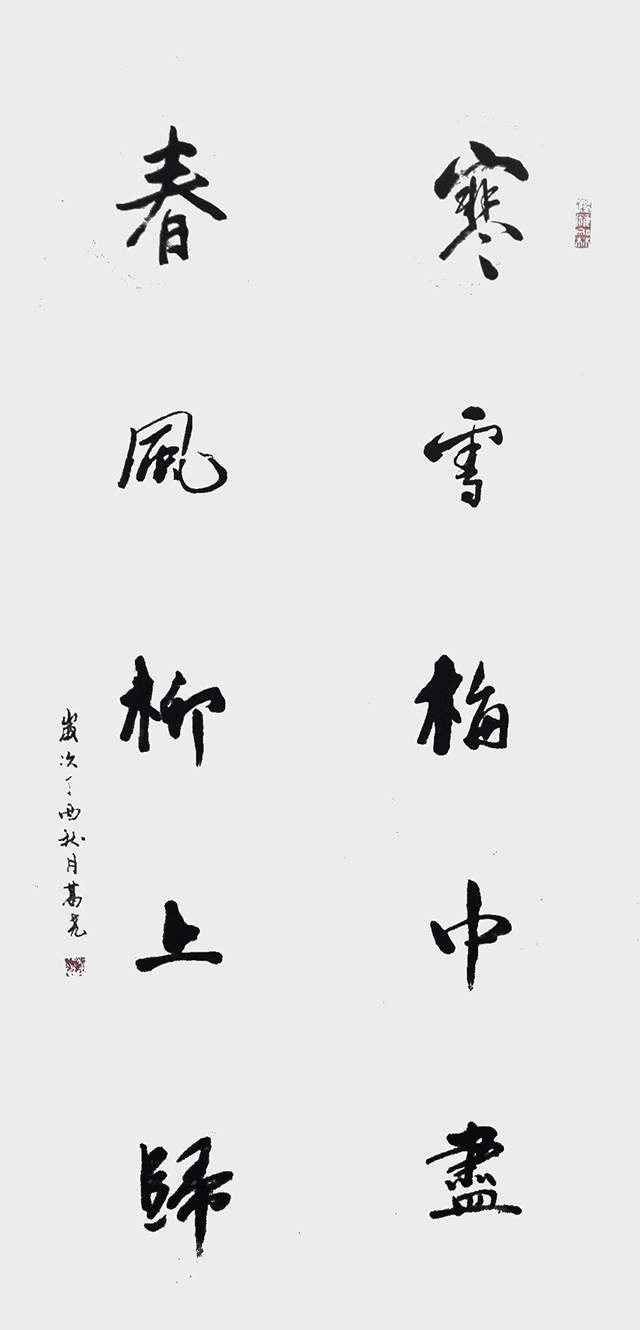 寒雪梅中盡
春風柳上歸
歲次丁酉秋月